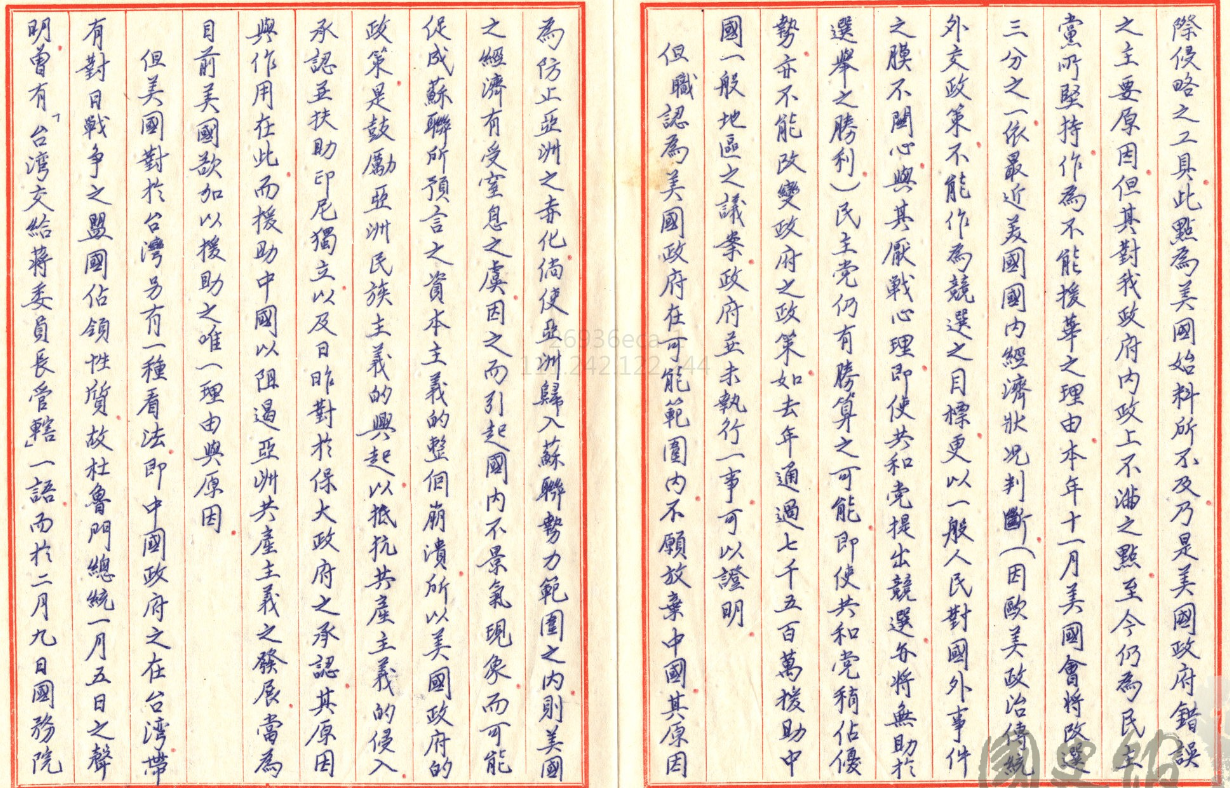 際侵略之工具此點為美國始料所不及乃是美國政府錯誤
之主要原因但其對我政府內政上不滿之點至今仍為民主
黨所堅持作為不能援華之理由本年十一月美國會將改選
三分之一依最近美國國內經濟狀況判斷(因歐美政治傳統
外交政策不能作為競選之目標更以一般人民對國外事件
之膜不關心與其厭戰心理即使共和党提出競選亦將無助於
選舉之勝利)民主党仍有勝算之可能即使共和党稍佔優
勢亦不能改變政府之政策如去年通過七千五百萬援助中
國一般地區之議案政府並未執行一事可以證明
但職認為美國政府在可能範圍內不願放棄中國其原因
為防止亞洲之赤化倘使亞洲歸入蘇聯勢力範圍之內則美國
之經濟有受窒息之虞因之而引起國內不景氣現象而可能
促成蘇聯所預言之資本主義的整個崩潰所以美國政府的
政策是鼓勵亞洲民族主義的興起以抵抗共產主義的侵入
承認並扶助印尼獨立以及日昨對於保大政府之承認其原因
與作用在此而援助中國以阻遏亞洲共產主義之發展當為
目前美國欲加以援助之唯一理由與原因
但美國對於台灣另有一種看法即中國政府之在台湾帶
有對日戰爭之盟國佔領性質故杜魯門總統一月五日之聲
明曾有「台湾交給蔣委員長管轄」一語而於二月九日國務院
26936eca
122.144
國史館